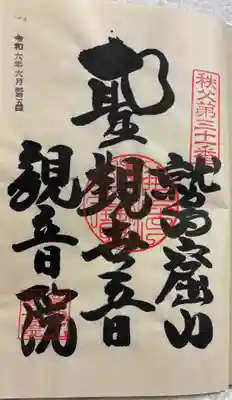 秩父第三十一番
鷲窟山
聖観世音
観音院
令和六年六月